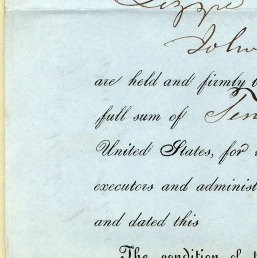 Lizzie
John
are held and firmly
full sum of Ten
United States, for
executors and administ
and dated this
The condition of